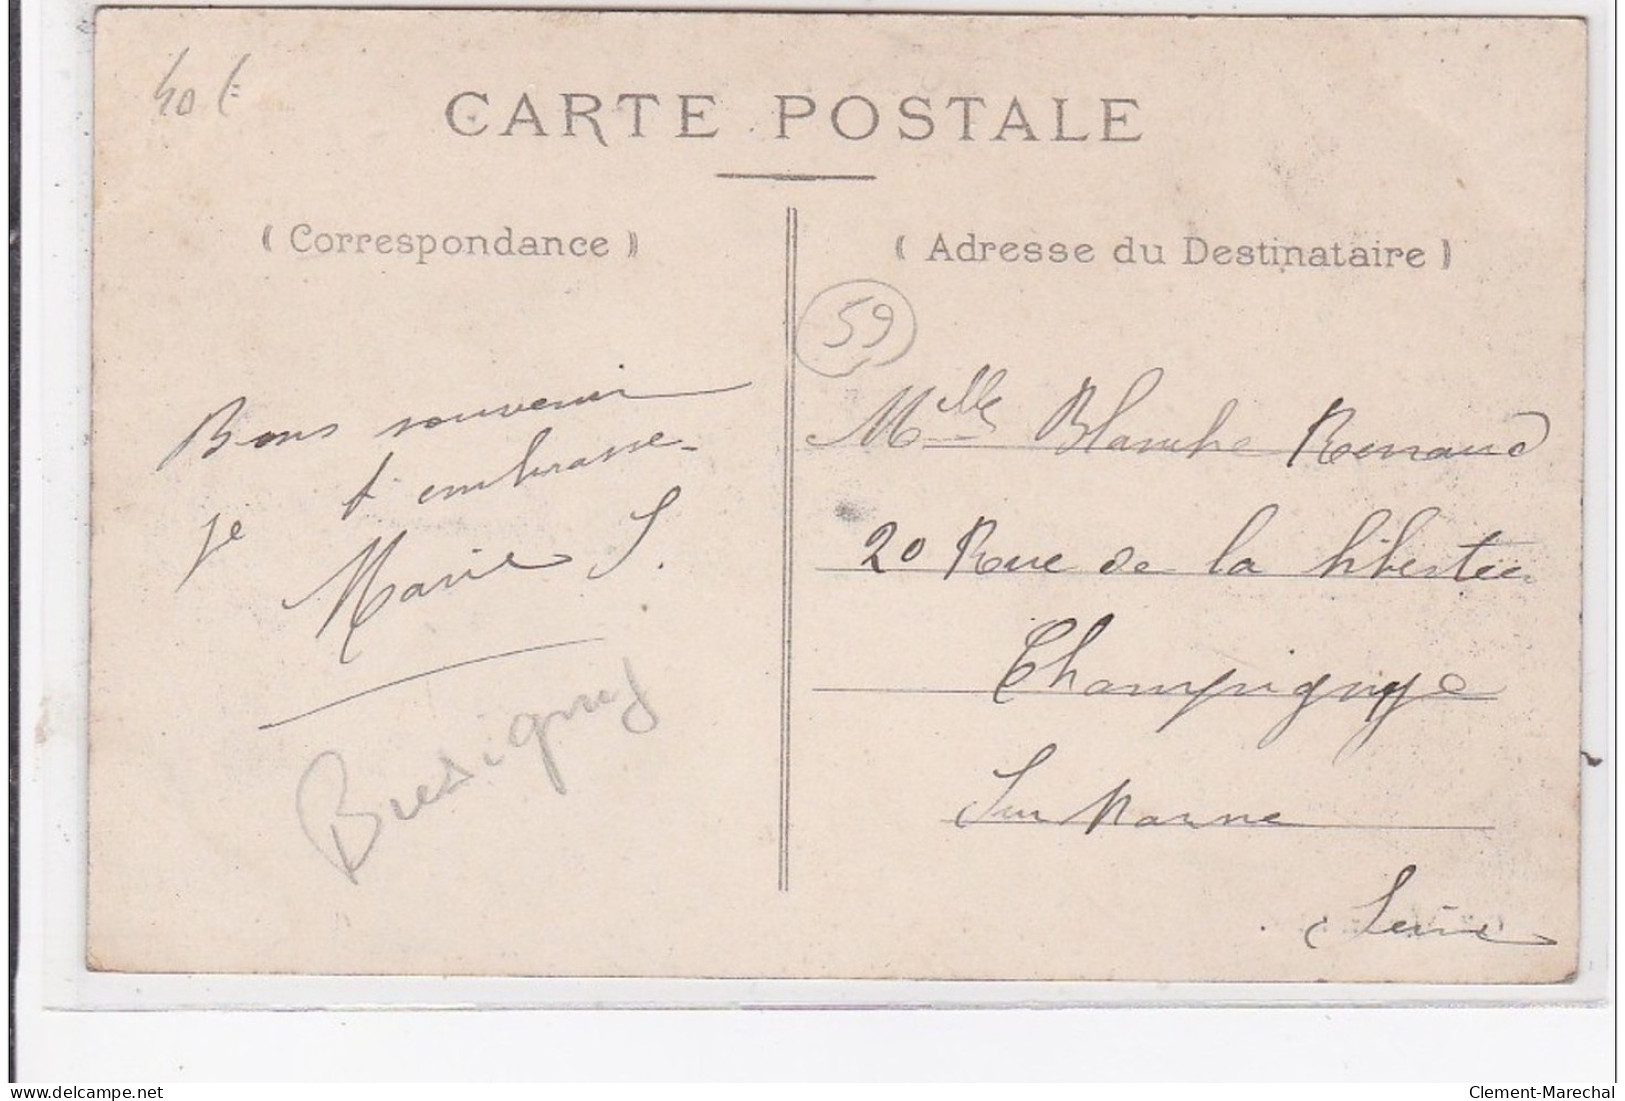 40 €
CARTE POSTALE
( Correspondance )
( Adresse du Destinataire )
59
Bons souvenir
je t embrasse
Marie S.
Busigny
Mlle Blanche Renaud
20 Rue de la libertée
Champignye
Sur Marne
Seine
delcampe.net
Clement-Marechal